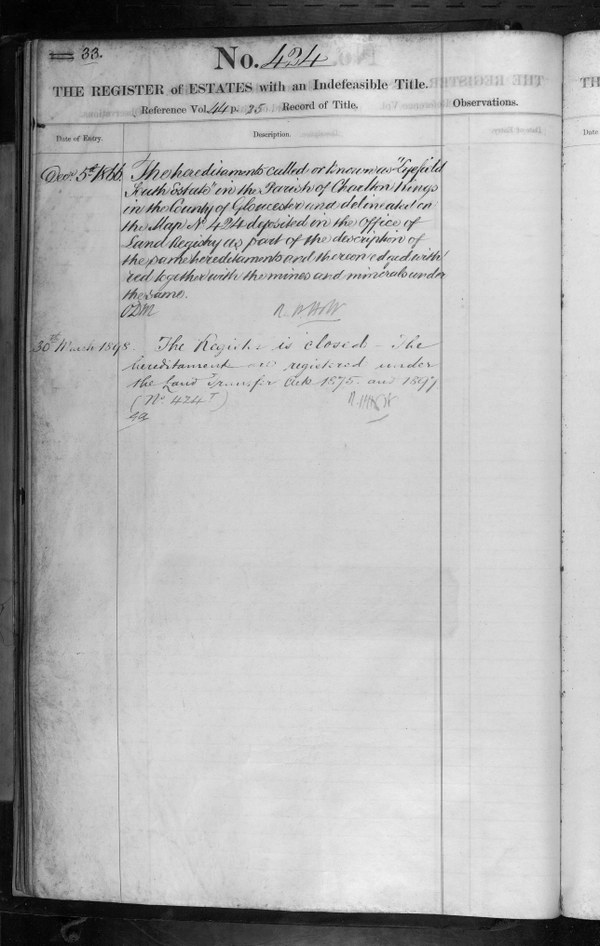 33.
No. 424
THE REGISTER of ESTATES with an Indefeasible Title.
Reference Vol. 44 p. 25 Record of Title.
Observations.
Date of Entry.
Description.
Decr 5th 1866. The hereditaments called or known as "Lyefield
South Estate" in the Parish of Charlton Kings
in the County of Gloucester and delineated on
the Map No 424 deposited in the Office of
Land Registry as part of the description of
the same hereditaments and thereon edged with
red together with the mines and minerals under
the same.
30th March 1898. The Register is closed - The
hereditaments are registered under
the Land Transfer Acts 1875 and 1897
(No 424T)